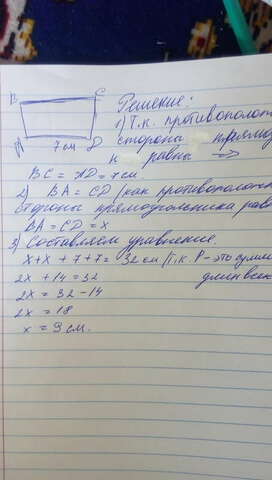 B C
Решение:
1) Т.к. противополож
стороны прямоу
A 7 см D
к равны =>
BC = AD = 7 см.
2) BA = CD /как противополож
стороны прямоугольника рав
BA = CD = x
3) Составляем уравнение.
x + x + 7 + 7 = 32 см /т.к. P - это сумма
длин всех
2x + 14 = 32
2x = 32 - 14
2x = 18
x = 9 см.